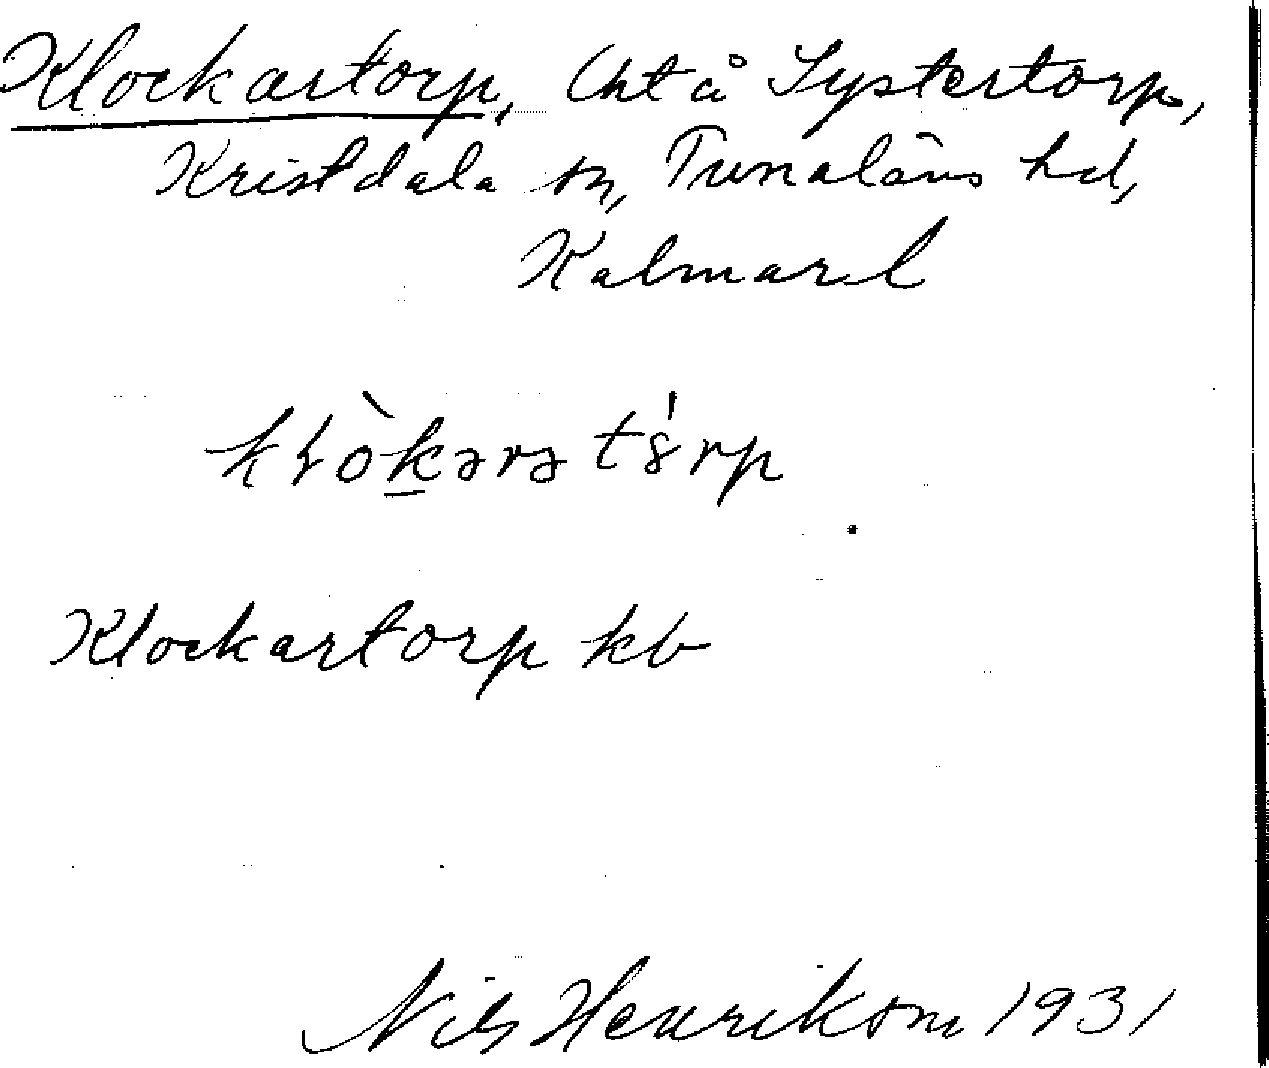 Klockartorp, lht å Systertorp,
Kristdala sn, Tunaläns hd,
Kalmar l
Klockartorp kb
Nils Henrikson 1931